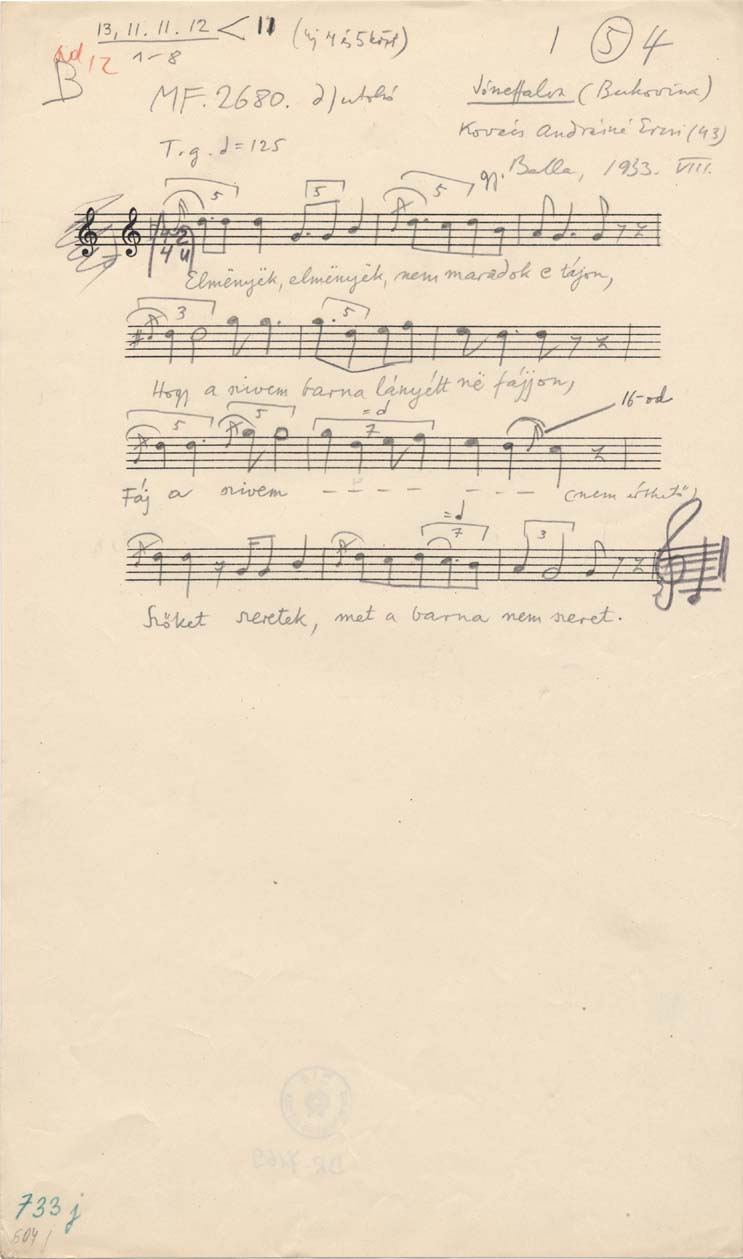 13, 11. 11. 12 < 11 (új 4 és 5 közt) 1 5 4
ad 12
B 1-8
MF. 2680. d) utolsó
Józseffalva (Bukovina)
Kovács Andrásné Erzsi (43)
T. g. = 125
gy. Balla, 1933. VIII.
5 5 5
Elmënyëk, elmënyëk, nem maradok e tájon,
3 5
Hogy a szivem barna lányétt në fájjon,
16-od
5 5 7
Fáj a szivem – – – – – – – (nem érthető)
7 3
Szőket szeretek, met a barna nem szeret.
733 j
604 j